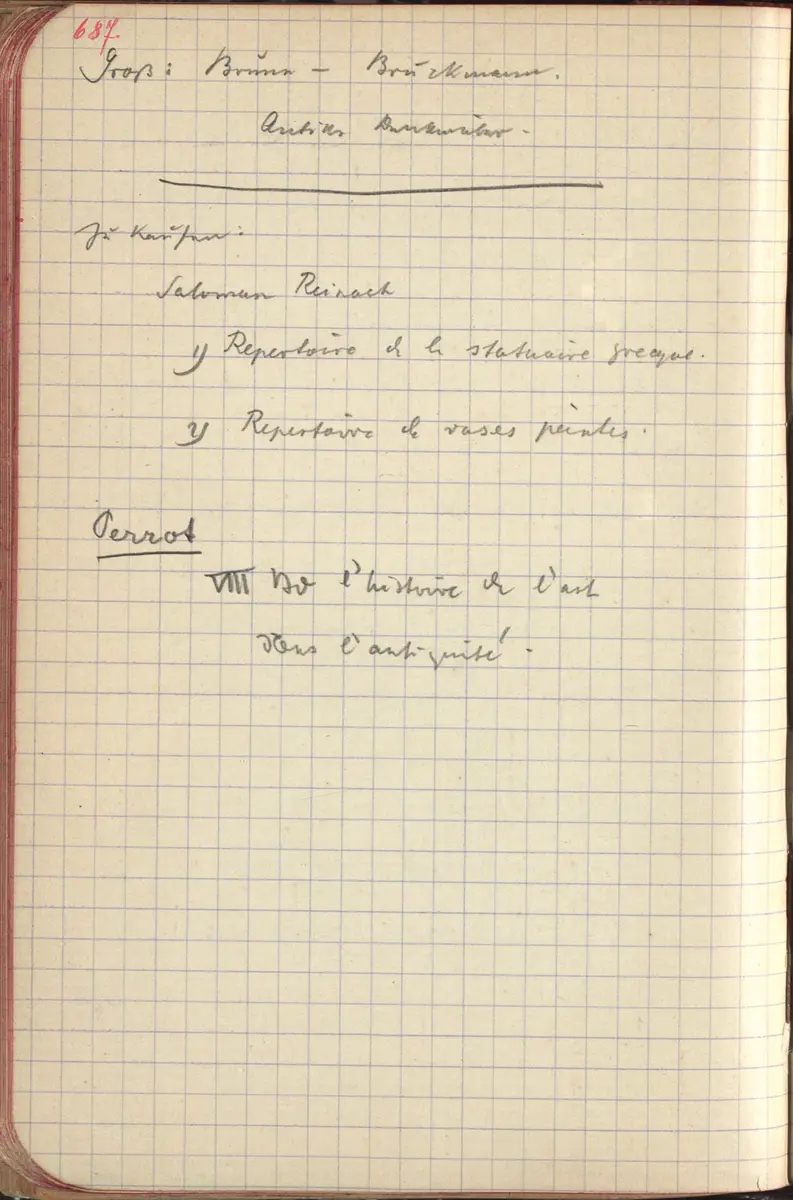 687.
Groß: Brunn – Bruckmann.
Antike Denkmäler.
Zu kaufen:
Salomon Reinach
1) Repertoire de la statuaire grecque.
2) Repertoire de vases peintes.
Perrot
VIII Bd l'histoire de l'art
dans l'antiquité.